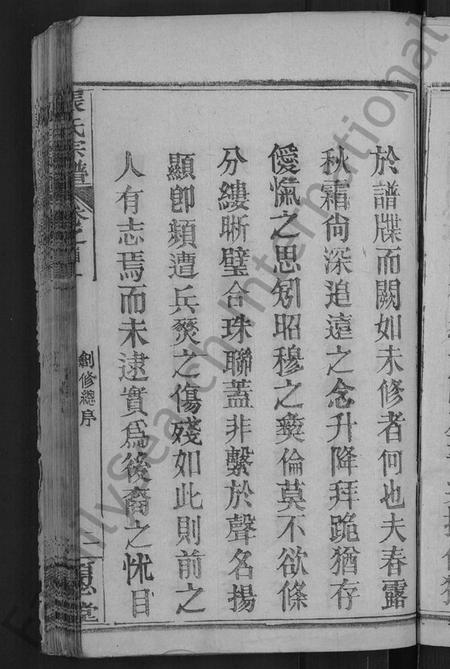 於譜牒而闕如未修者何也夫春露
秋霜尙深追遠之念升降拜跪猶存
僾愾之思矧昭穆之彛倫莫不欲條
分縷晰璧合珠聯蓋非繫於聲名揚
顯卽頻遭兵燹之傷殘如此則前之
人有志焉而未逮實爲後裔之怵目
張氏宗譜
卷之首
創修總序
堂
FamilySearch International